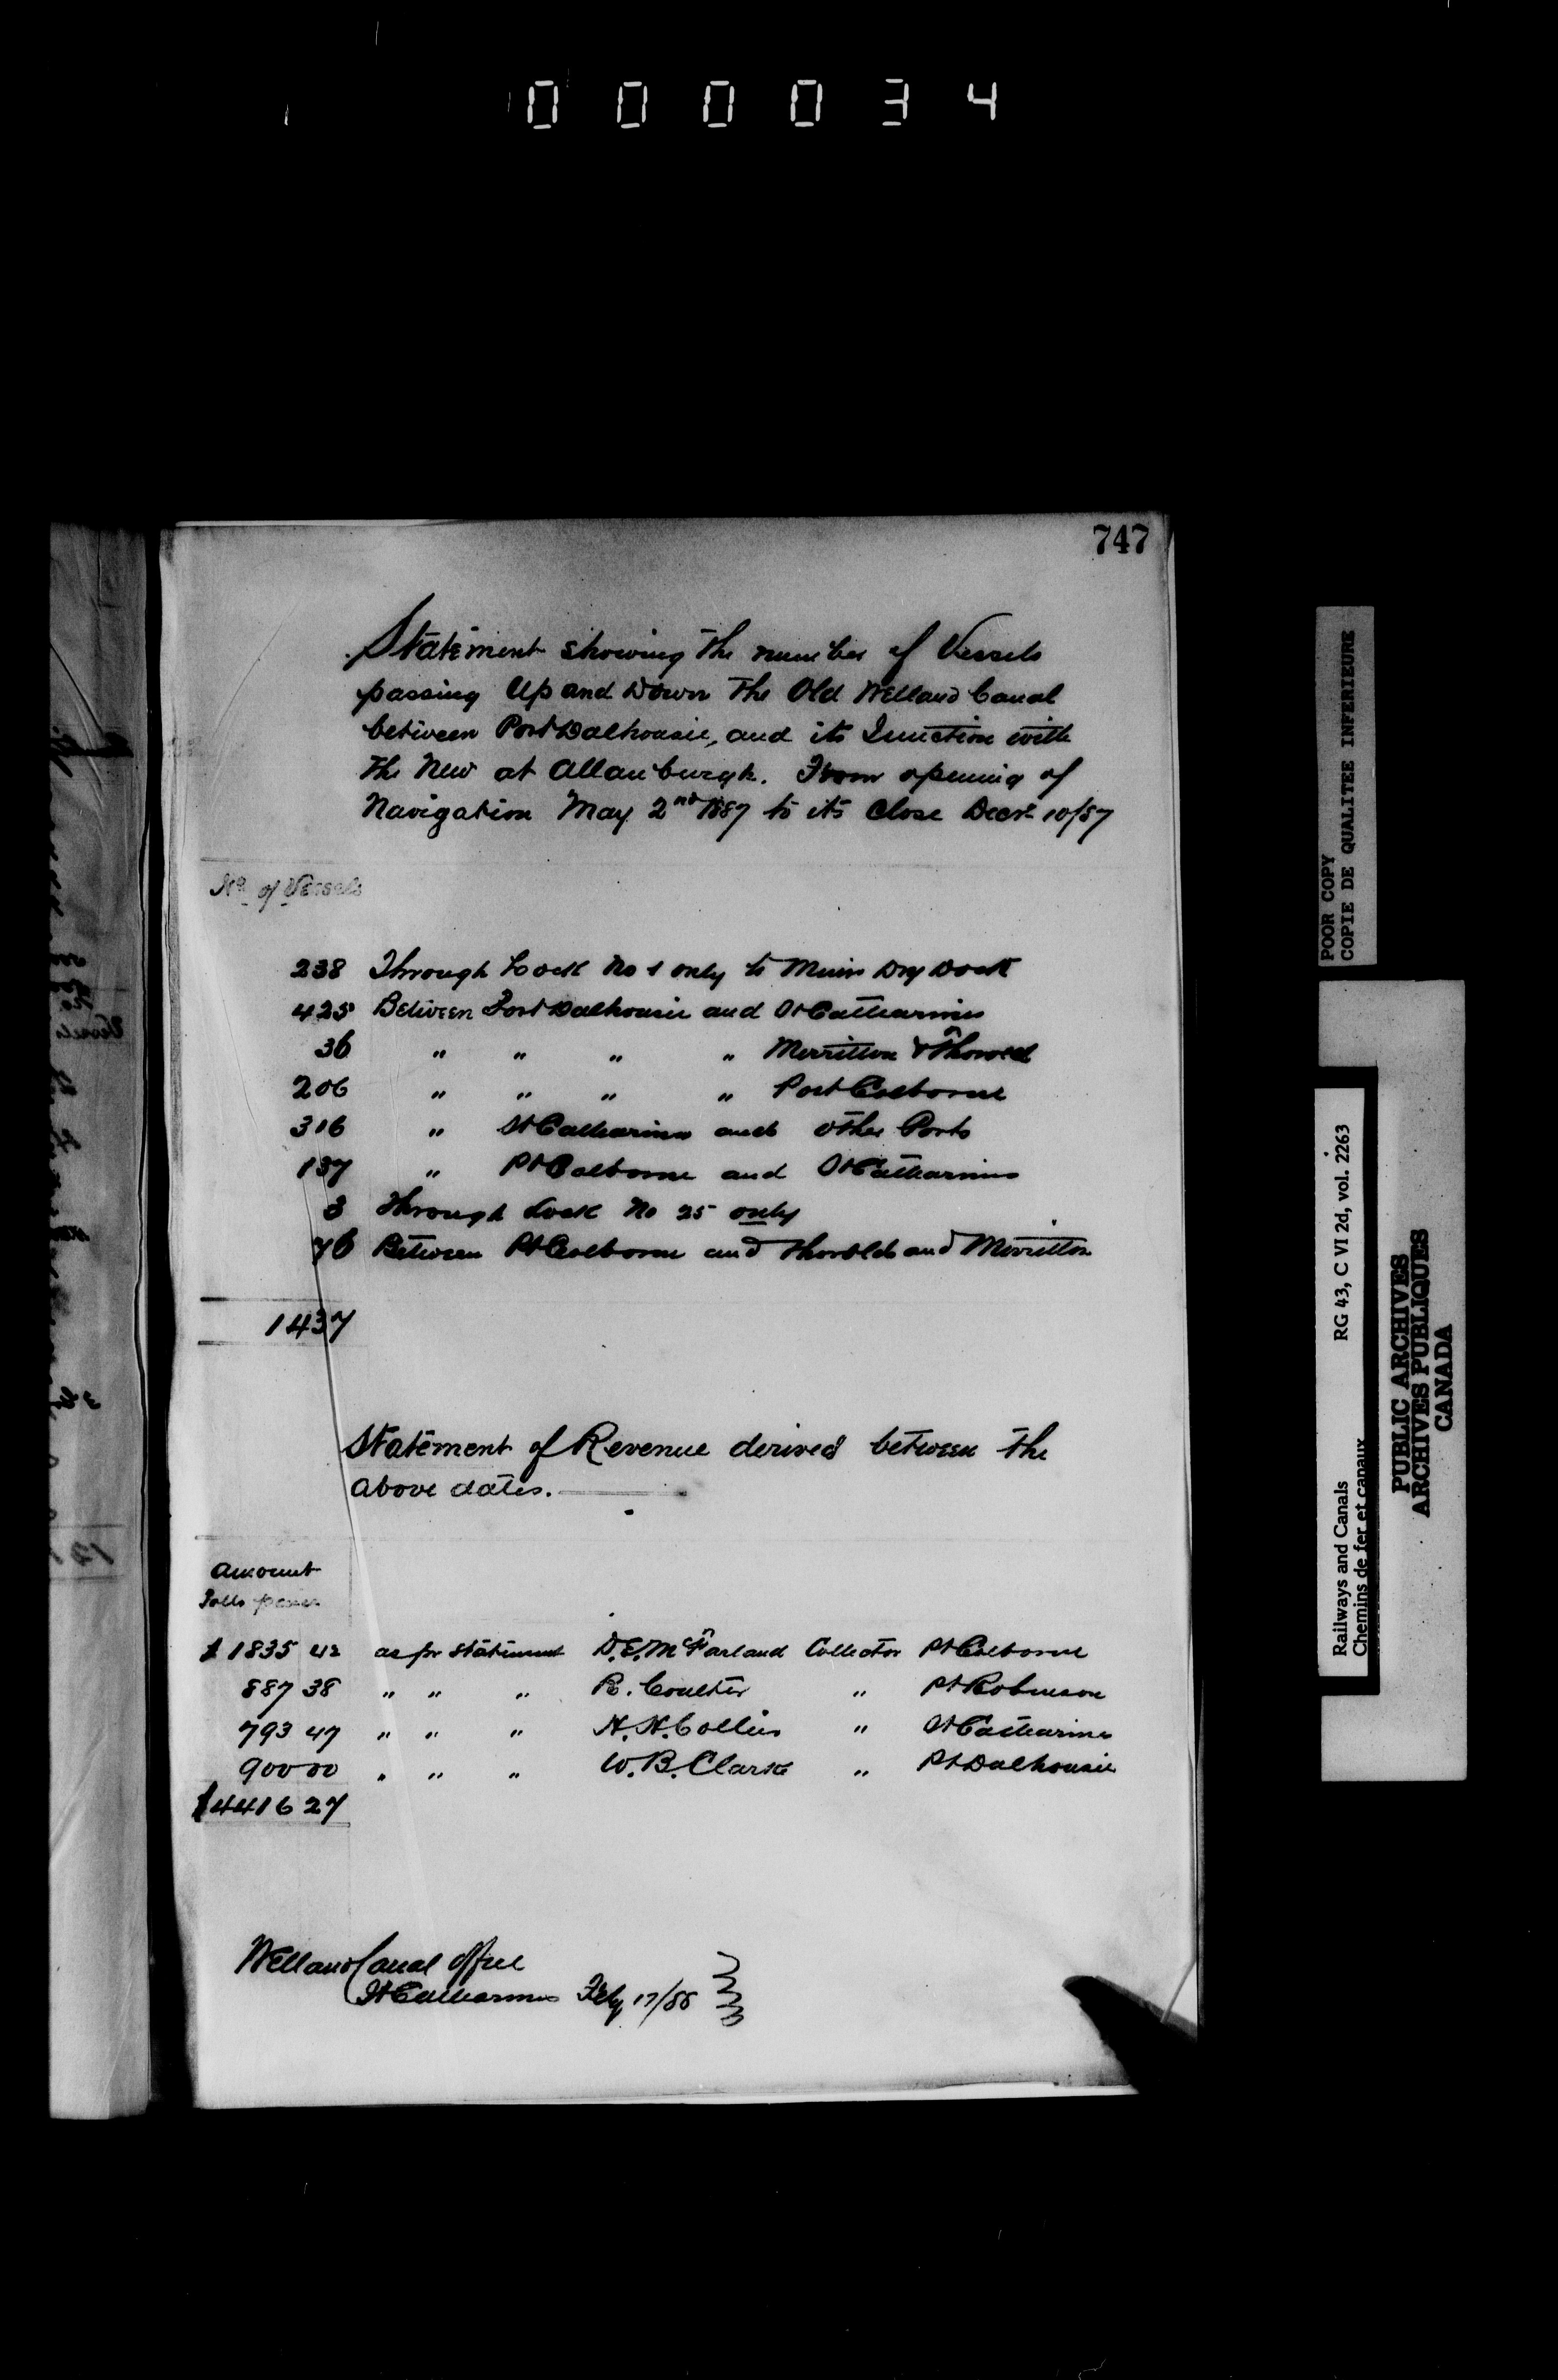 000034
747
Statement showing the number of Vessels
passing Up and Down the Old Welland Canal
between Port Dalhousie, and its Junction with
the New at Allanburgh. From opening of
Navigation May 2nd 1887 to its Close Decr 10/87
No of Vessels
238 Through Lock No 1 only to Muirs Dry Dock
425 Between Port Dalhousie and St Catharines
36 " " " " Merritton & Thorold
206 " " " " Port Colborne
316 " St Catharines and other Ports
137 " Pt Colborne and St Catharines
3 Through Lock No 25 only
76 Between Pt Colborne and Thorold and Merritton
1437
Statement of Revenue derived between the
above dates.
Amount
Tolls
$1835 42 as pr statement D.E. McFarland Collector Pt Colborne
887 38 " " " R. Coulter " Pt Robinson
793 47 " " " H.H. Collier " St Catharines
900 00 " " " W.B. Clark " Pt Dalhousie
$4416 27
Welland Canal Office
St Catharines Feby 17/88
POOR COPY
COPIE DE QUALITEE INFERIEURE
Railways and Canals RG 43, C VI 2d, vol. 2263
Chemins de fer et canaux
PUBLIC ARCHIVES
ARCHIVES PUBLIQUES
CANADA